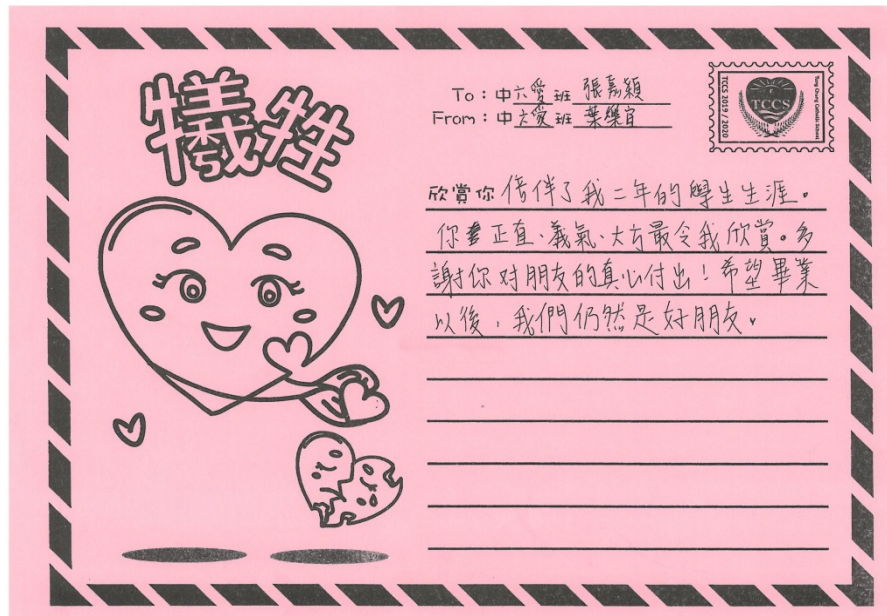 犧牲
To：中六愛班 張嘉穎
From：中六愛班 葉樂宜
TCCS 2019 / 2020
TCCS
Tung Chung Catholic School
欣賞你倍伴了我二年的學生生涯。
你正直、義氣、大方最令我欣賞。多
謝你对朋友的真心付出！希望畢業
以後，我們仍然是好朋友。